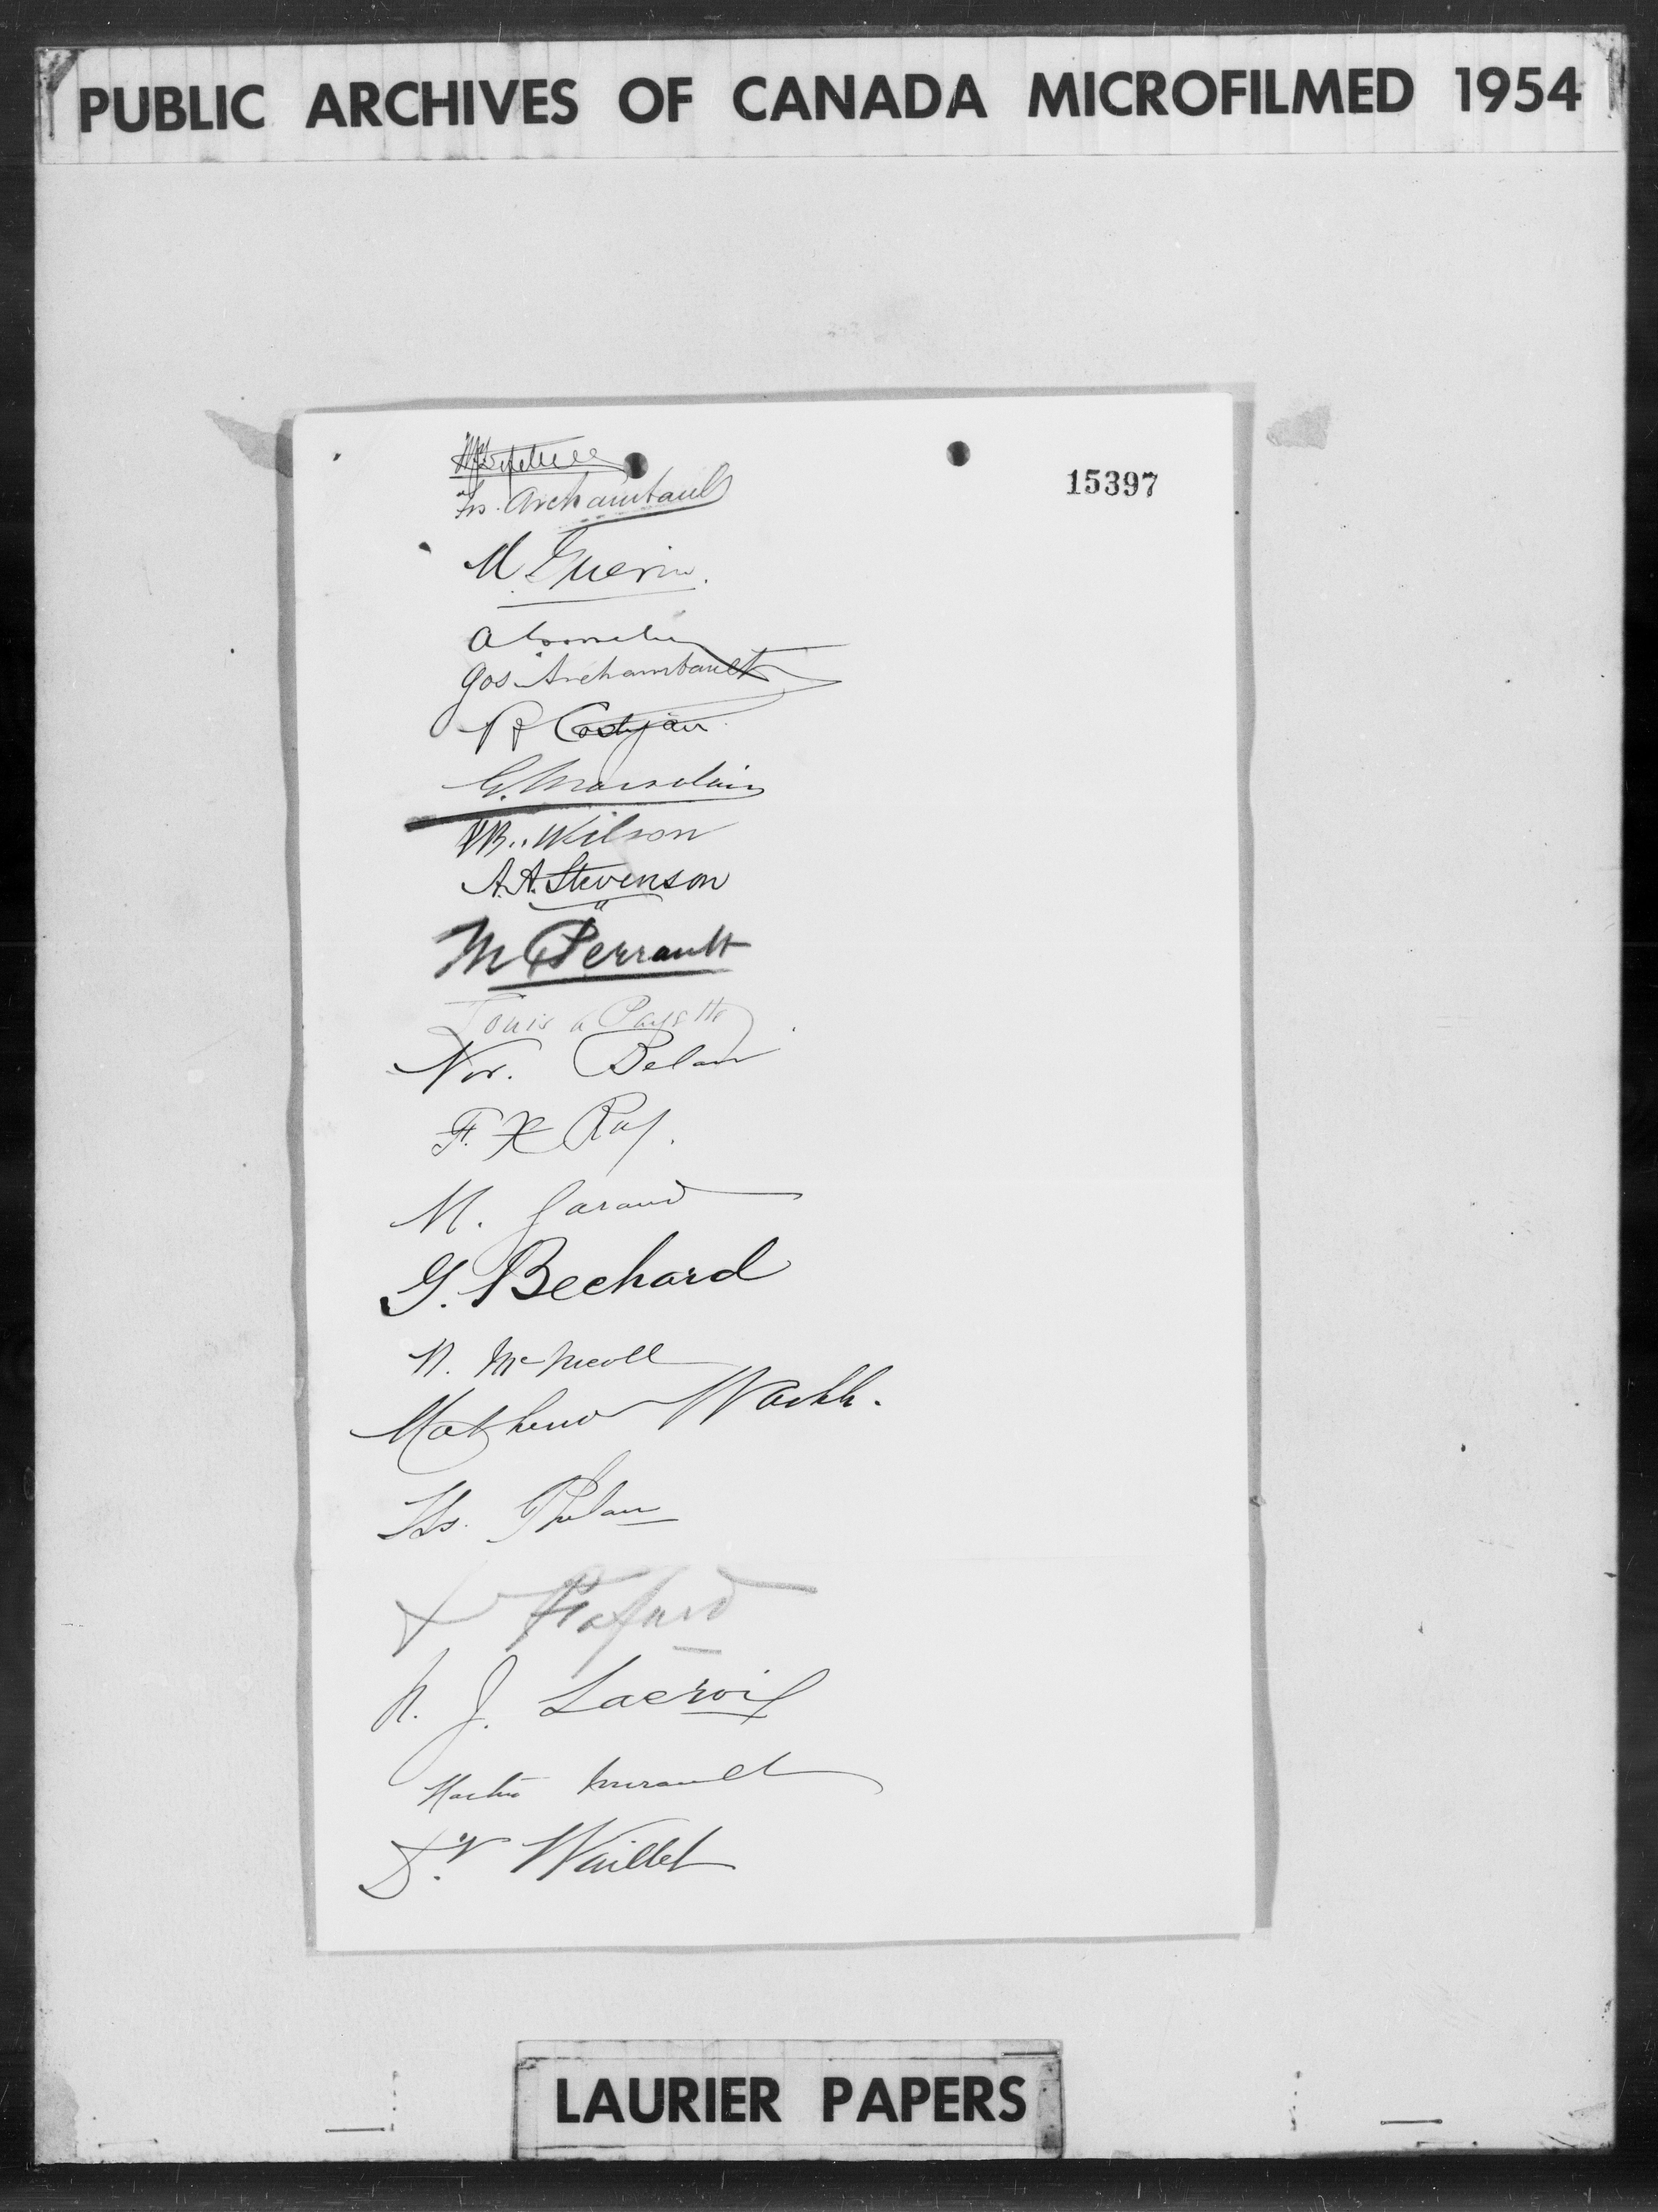 PUBLIC ARCHIVES OF CANADA MICROFILMED 1954
15397
Frs. Archambault
M. Guerin.
Jos Archambault
G. Marsolais
Wilson
A.A. Stevenson
M Perrault
Louis a Payette
Nor. Belair
F. X Roy.
M. Garand
G. Bechard
N. McNicoll
Mathew Walsh.
Ths. Phelan
N. J. Lacroix
Martin
LAURIER PAPERS